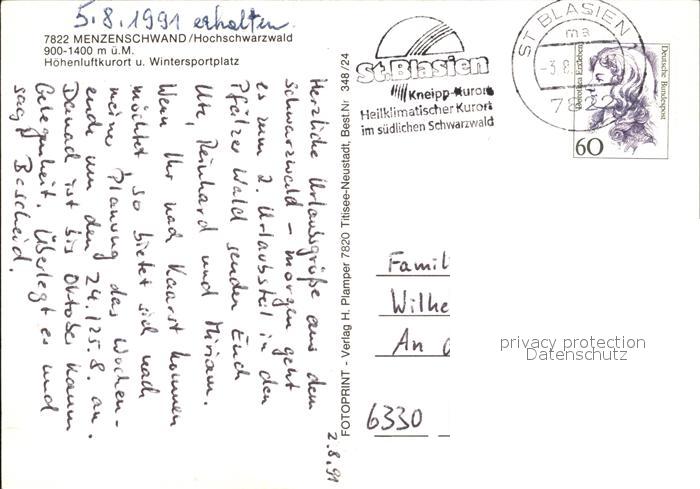 5.8.1991 erhalten.
7822 MENZENSCHWAND/Hochschwarzwald
900-1400 m ü.M.
Höhenluftkurort u. Wintersportplatz
Herzliche Urlaubsgrüße aus dem
Schwarzwald - morgen geht
es zum 2. Urlaubsteil in den
Pfälzer Wald senden Euch
Ute, Reinhard und Miriam.
Wenn Ihr nach Kaarst kommen
möchtet, so bietet sich nach
meiner Planung das Wochen-
ende um den 24./25.8. an.
Danach ist bis Oktober kaum
Gelegenheit. Überlegt es und
sagt Bescheid.
2.8.91
FOTOPRINT - Verlag H. Plamper 7820 Titisee-Neustadt, Best.Nr. 348/24
St. Blasien
Kneipp-Kurort
Heilklimatischer Kurort
im südlichen Schwarzwald
ST BLASIEN
ma
-3.8.
7822
Dorothea Erxleben
Deutsche Bundespost
60
Famil
Wilhe
An d
6330
privacy protection
Datenschutz